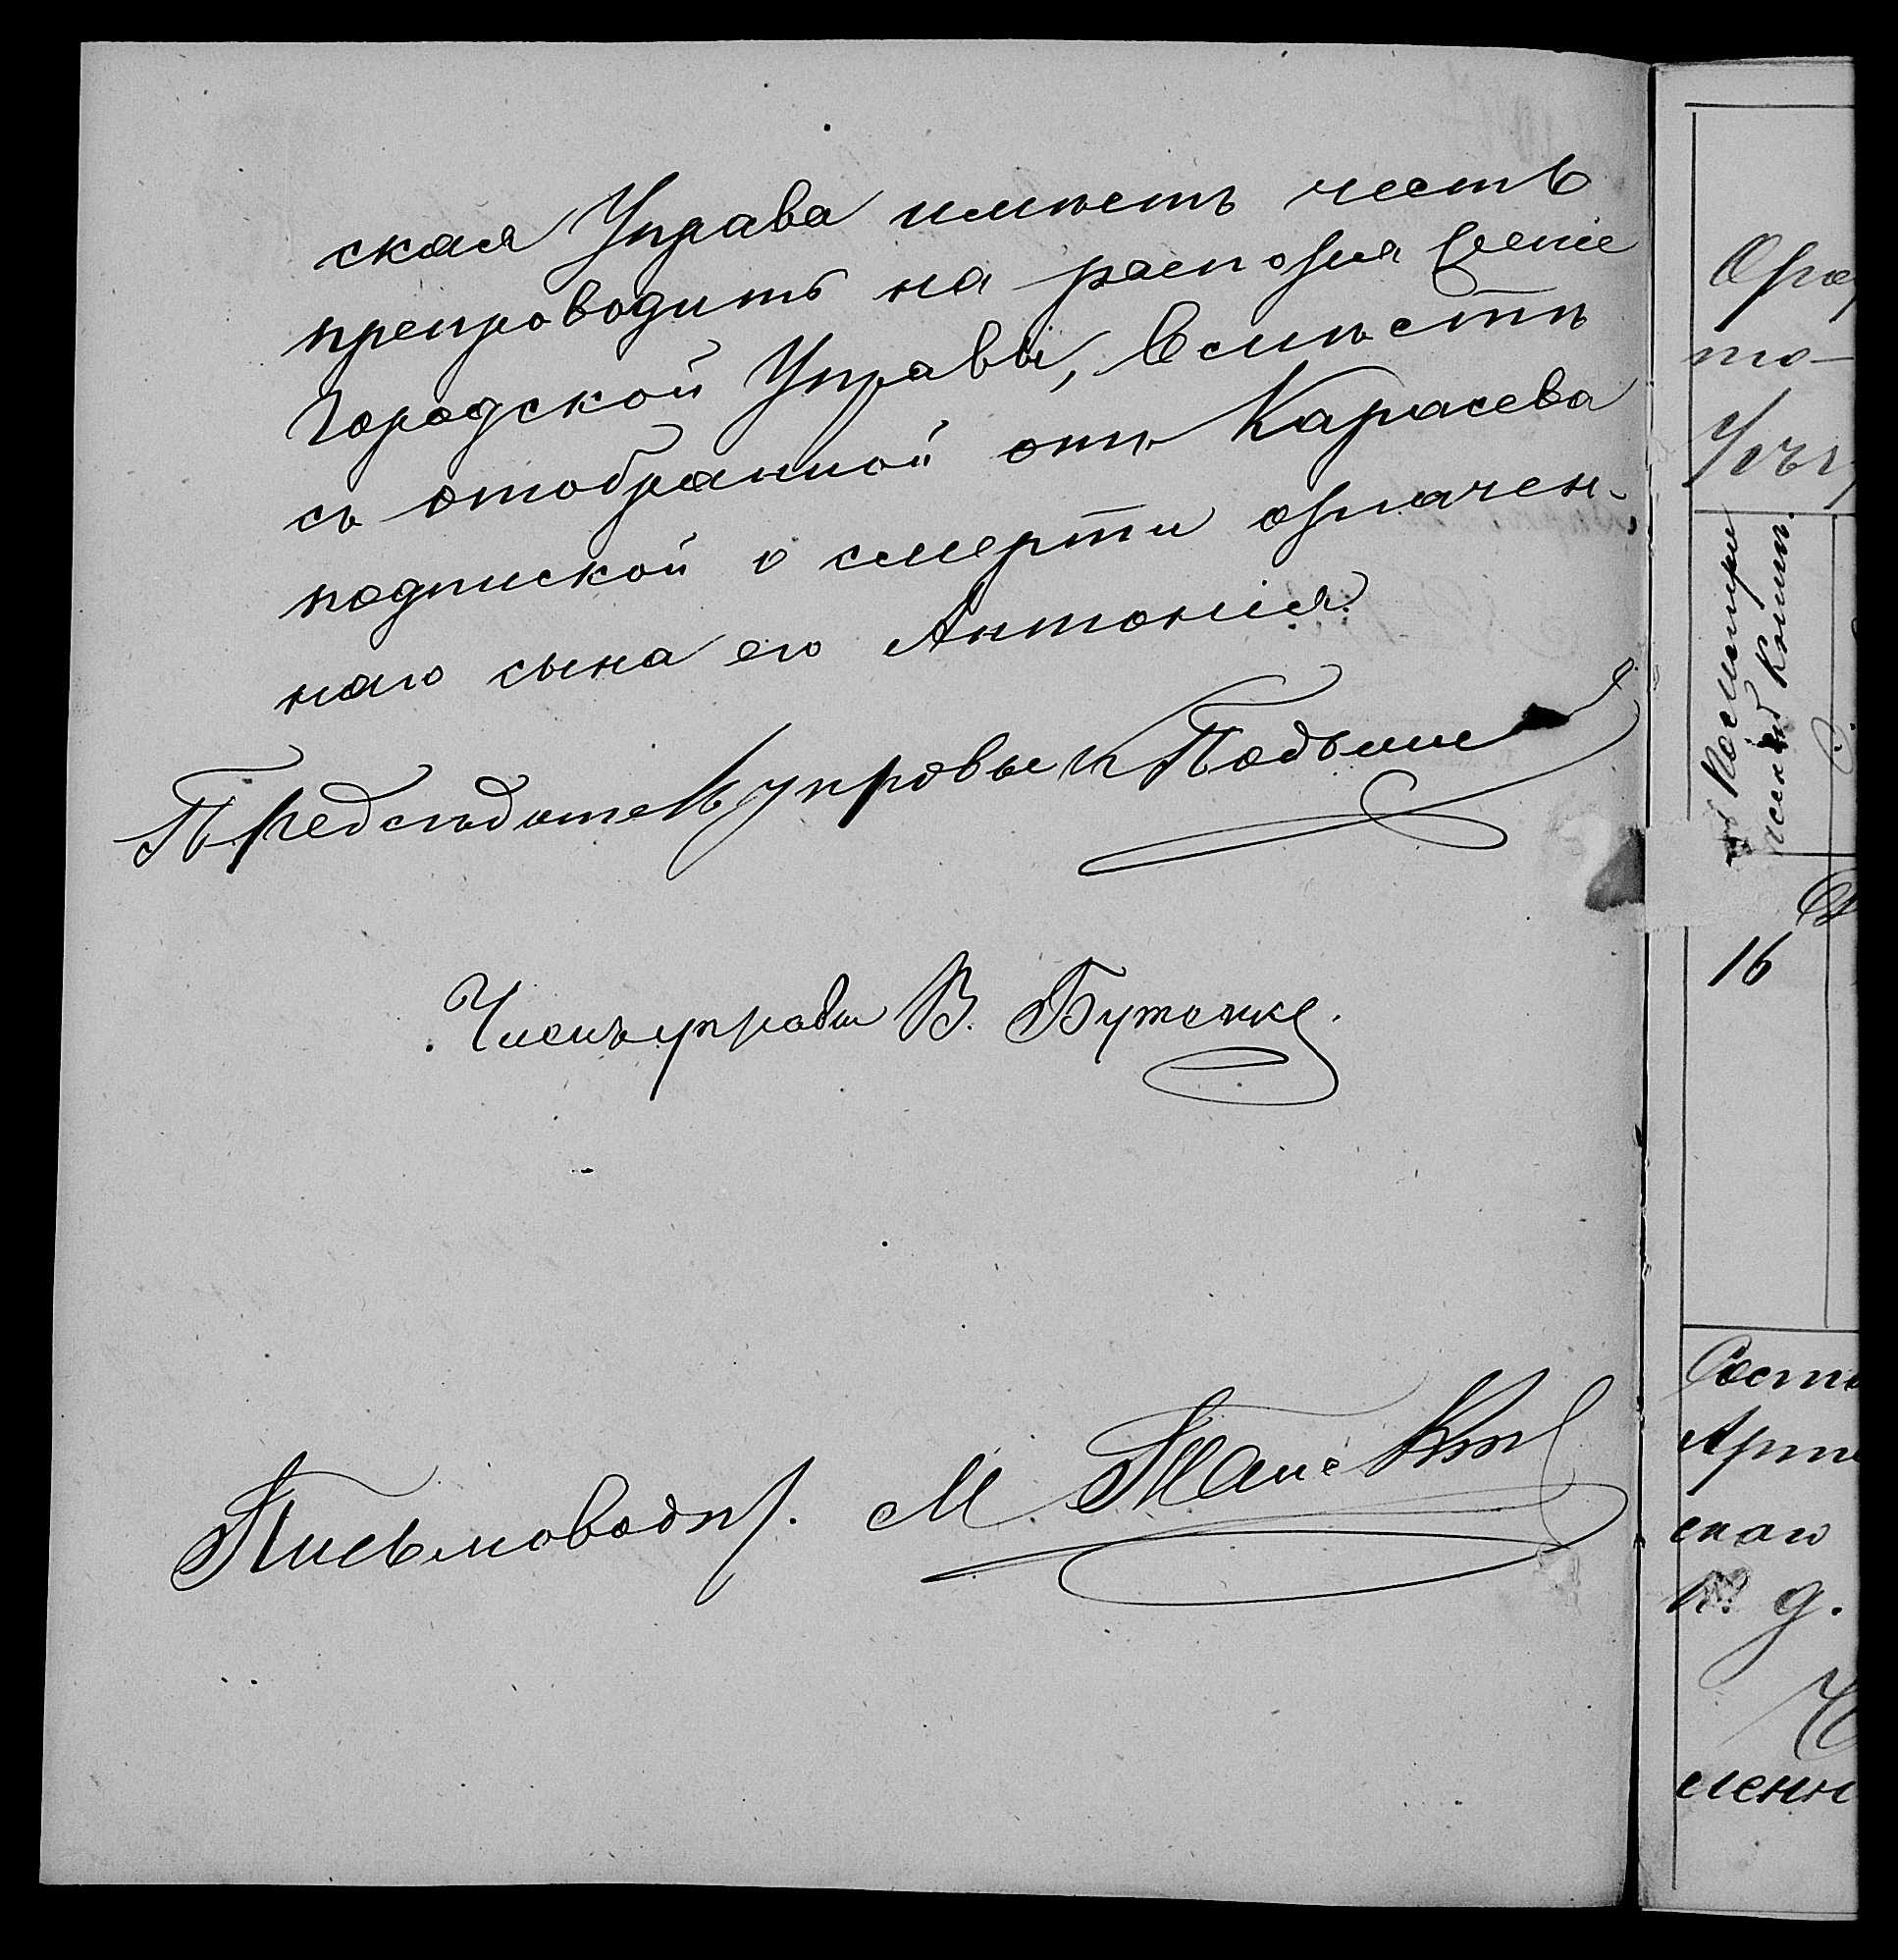 ская Управа имѣетъ честь
препроводить на распоряженіе
Городской Управы, вмѣстѣ
съ отобранной отъ Карасева
подпиской о смерти означен-
наго сына его Антонія.
Предсѣдатель управы
Членъ управы В. Бутенко.
Письмовод. М.
то-
16
Состо
Арти
скаго
№ 9.